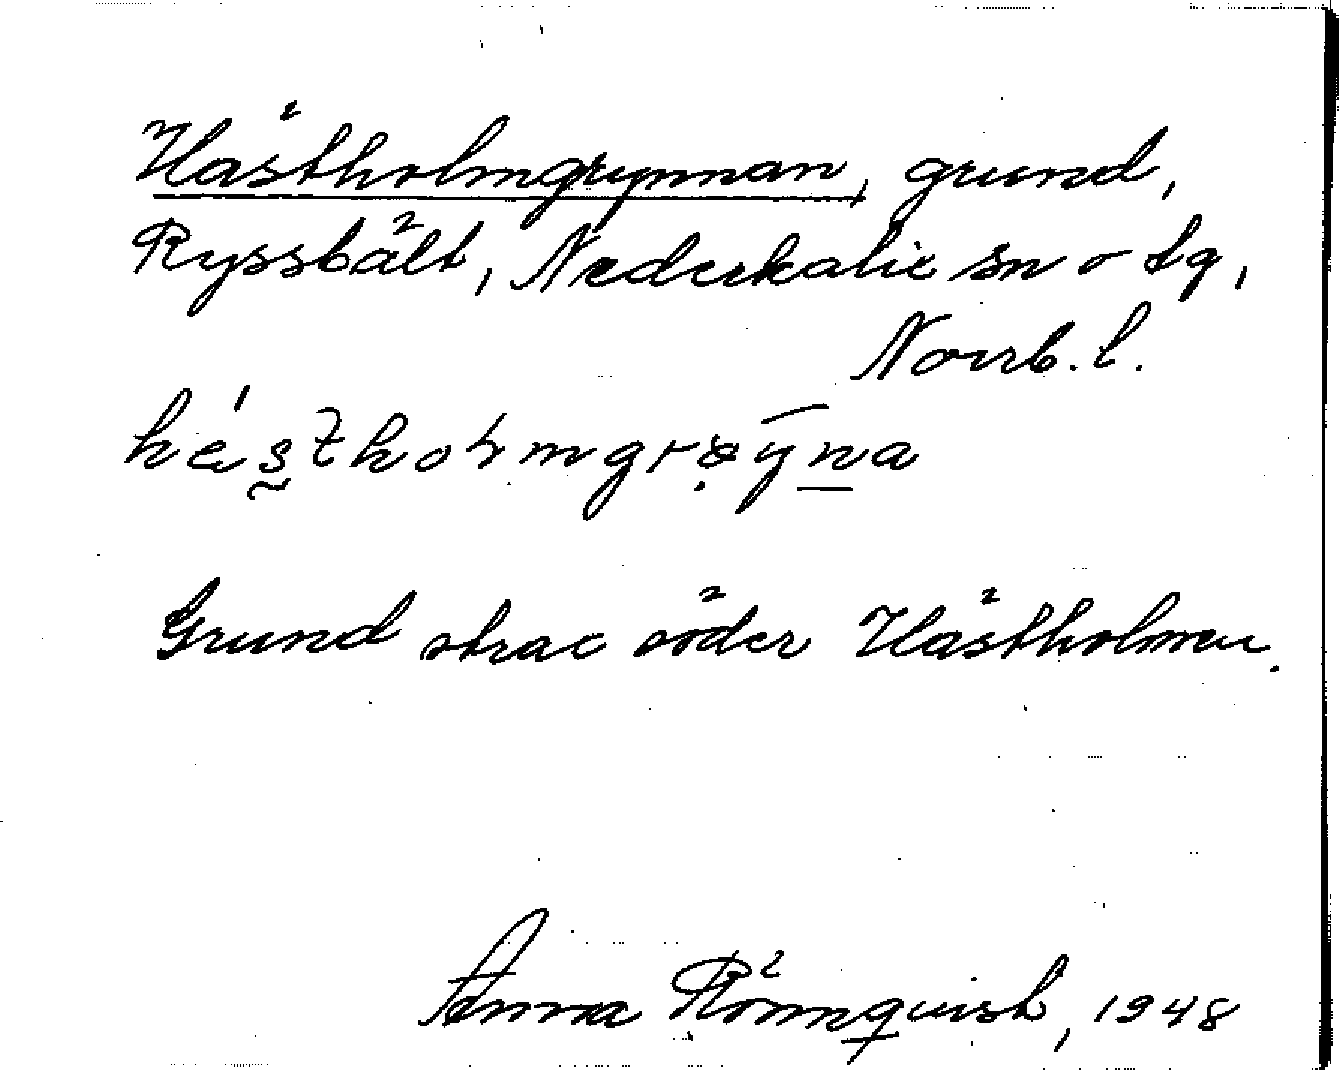 Hästholmgrynnan, grund,
Ryssbält, Nederkalix sn o tg,
Norrb. l.
Grund strax söder Hästholmen.
Anna Rönnquist, 1948